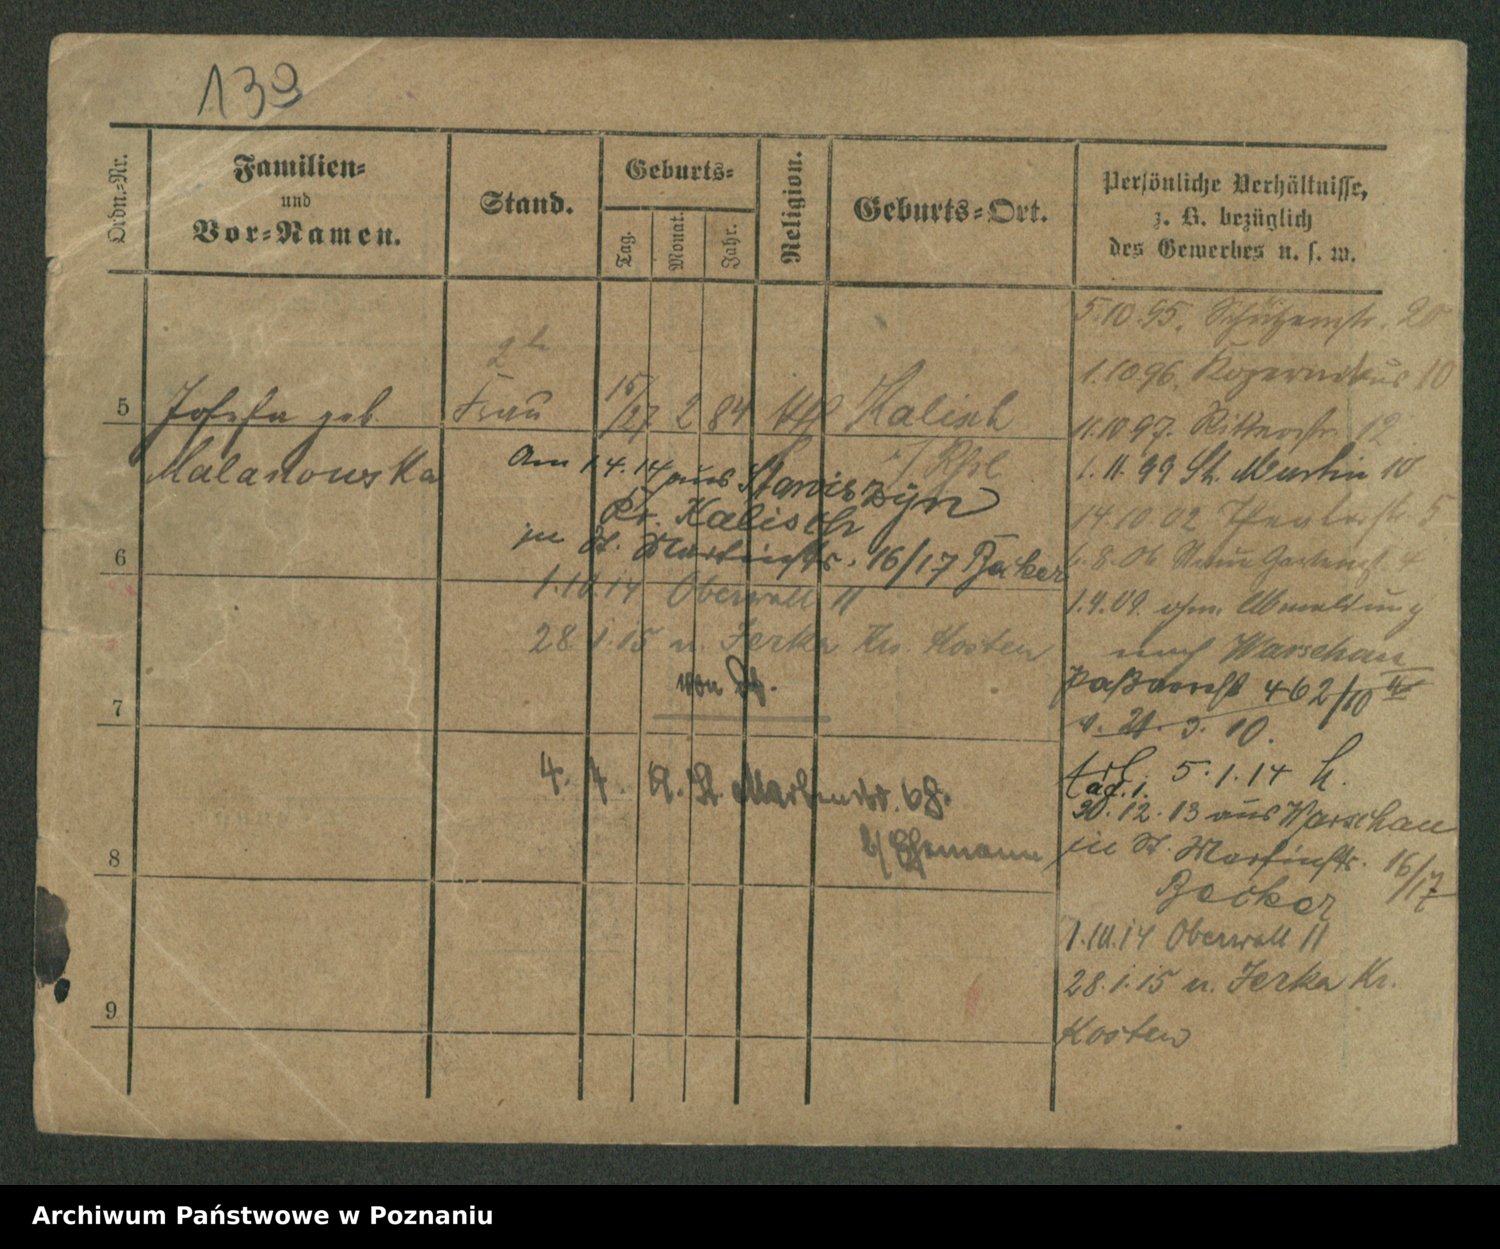 139
Ordn.-Nr.
Familien-
und
Vor-Namen.
Stand.
Geburts-
Tag.
Monat.
Jahr.
Religion.
Geburts-Ort.
Persönliche Verhältnisse,
z. B. bezüglich
des Gewerbes u. s. w.
5
Josefa geb
Malanowska
2te
Frau
15/27 2 84 kth Kalisch
/ Rßl
Am 1.4.14 aus Stawiszyn
Kr. Kalisch
in St. Martinstr. 16/17 Becker
1.10.14 Oberwall 11
28.1.15 n. Jerka Kr. Kosten
4. 7. St. Martinstr. 68.
b/ Ehemann
6
7
8
9
5.10.95. Schützenstr. 20
1.10.96. 10
11.10.97. Ritterstr. 12
1.11.99 St. Martin 10
14.10.02 Theaterstr. 5
6.8.06 Neue Gartenst. 4
1.4.09. ohne Abmeldung
nach Warschau
462/10
v. 21. 3. 10.
5.1.14
30.12.13 aus Warschau
in St. Martinstr. 16/17
Becker
1.10.14 Oberwall 11
28.1.15 n. Jerka Kr.
Kosten
Archiwum Państwowe w Poznaniu